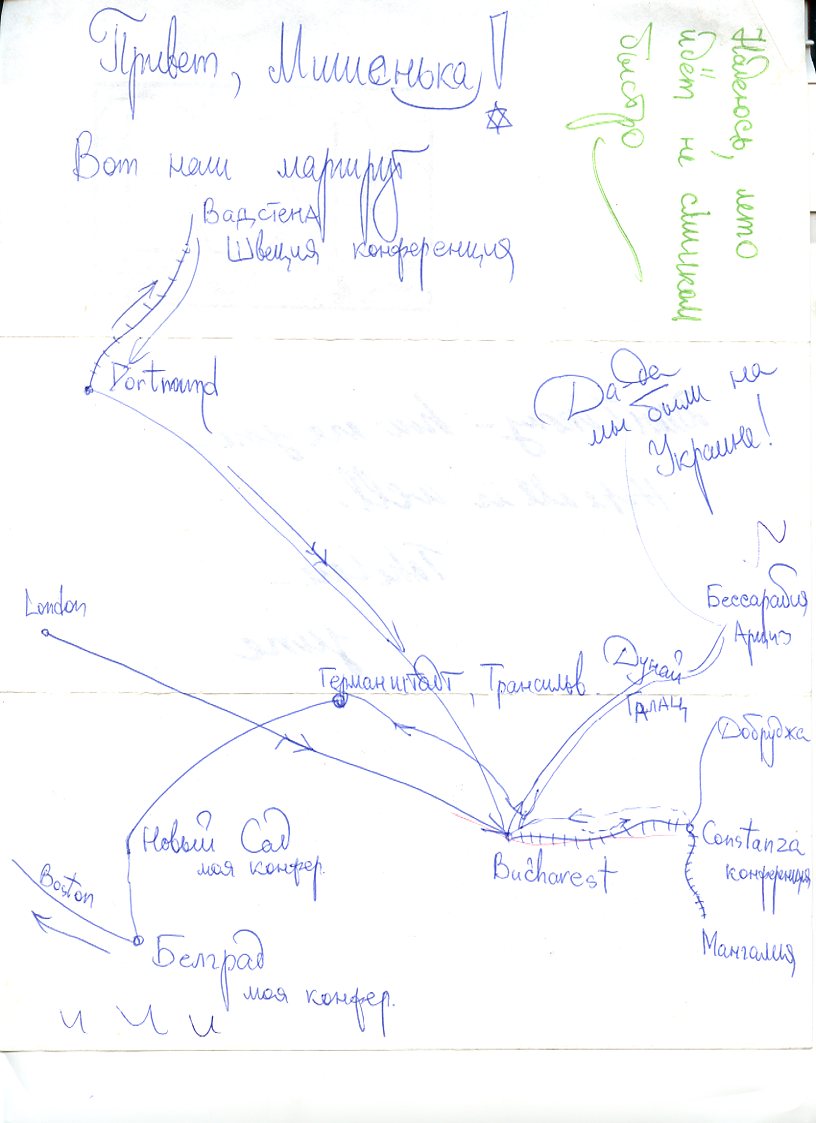 Привет, Мишенька!
Надеюсь, лето
идёт не слишком
быстро
Вот наш маршрут
Вадстена
Швеция конференция
Dortmund
Да-да
мы были на
Украине!
London
Бессарабия
Арциз
Дунай
Галац
Германштадт, Трансильв.
Добруджа
Новый Сад
моя конфер.
Constanza
конференция
Bucharest
Boston
Белград
моя конфер.
Мангалия